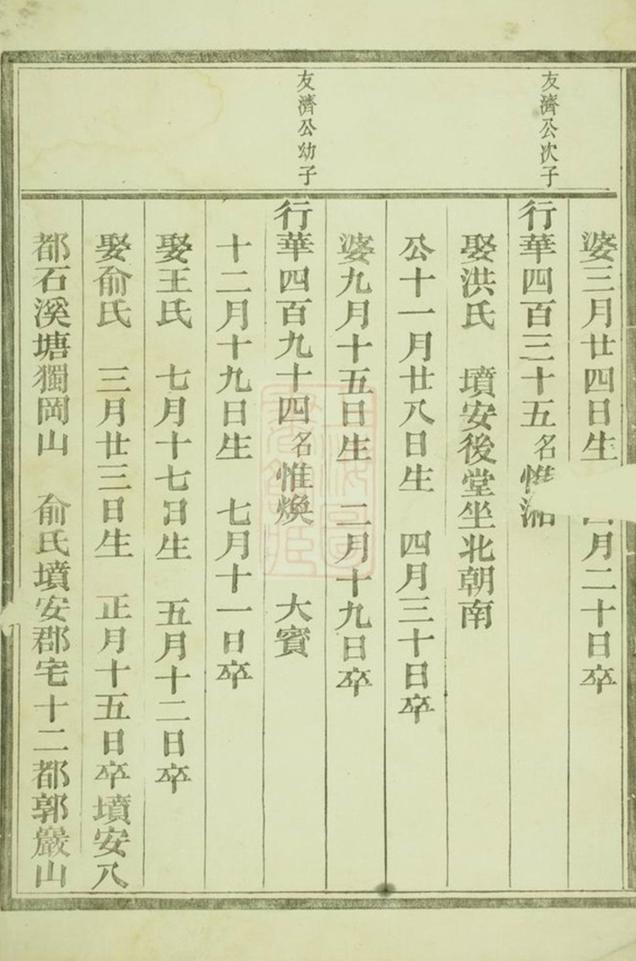 婆三月廿四日生 月二十日卒
友濟公次子
行華四百三十五名惟
娶洪氏 墳安後堂坐北朝南
公十一月廿八日生 四月三十日卒
婆九月十五日生 二月十九日卒
友濟公幼子
行華四百九十四名惟煥 大賓
十二月十九日生 七月十一日卒
娶王氏 七月十七日生 五月十二日卒
娶俞氏 三月廿三日生 正月十五日卒墳安八
都石溪塘獨岡山 俞氏墳安郡宅十二都郭巖山